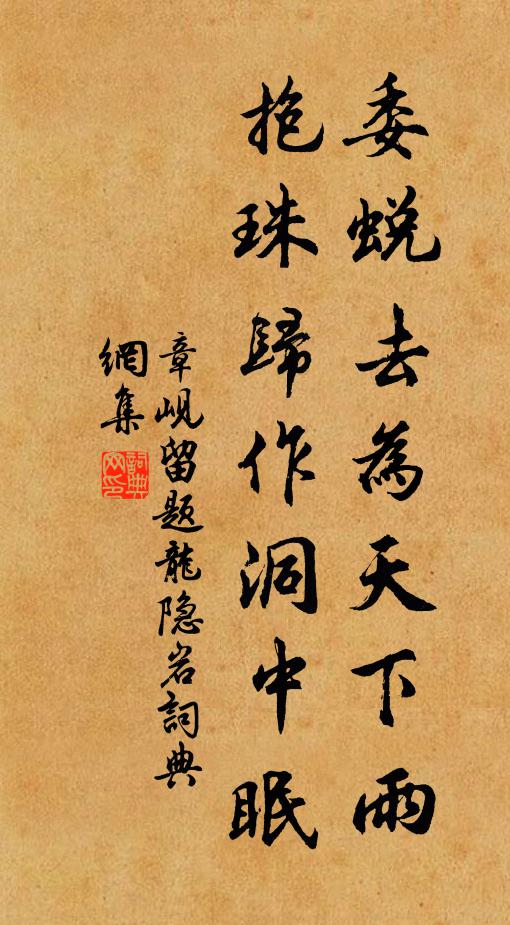 委蜕去為天下雨
抱珠歸作洞中眠
章岘留題龍隐岩詞典
網集
詞典
网印